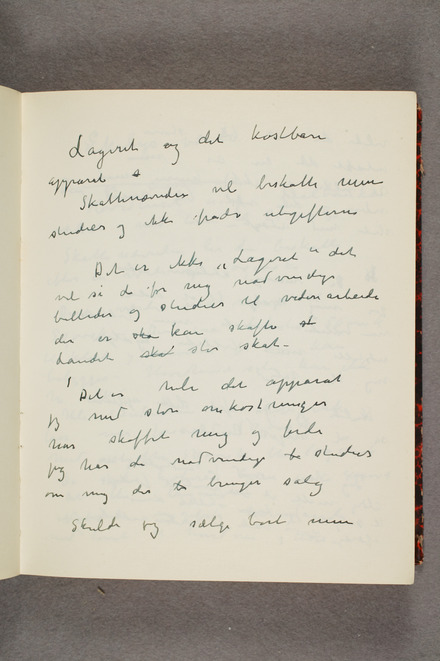 Lageret og det kostbare
apparat
Skattemændene vil beskatte mine
studier og ikke fradr udgifterne
Det er ikke „Lageret" det
vil si de for mig nødvendige
billeder og studier til videre arbeide
der er ska kan skaffe st
handel skat stor skat –
Det er hele det apparat
jeg med store omkostninger
har skaffet mig og fordi
jeg har de nødvendige studier
om mig der bringer salg
Skulde jeg sælge bort mine